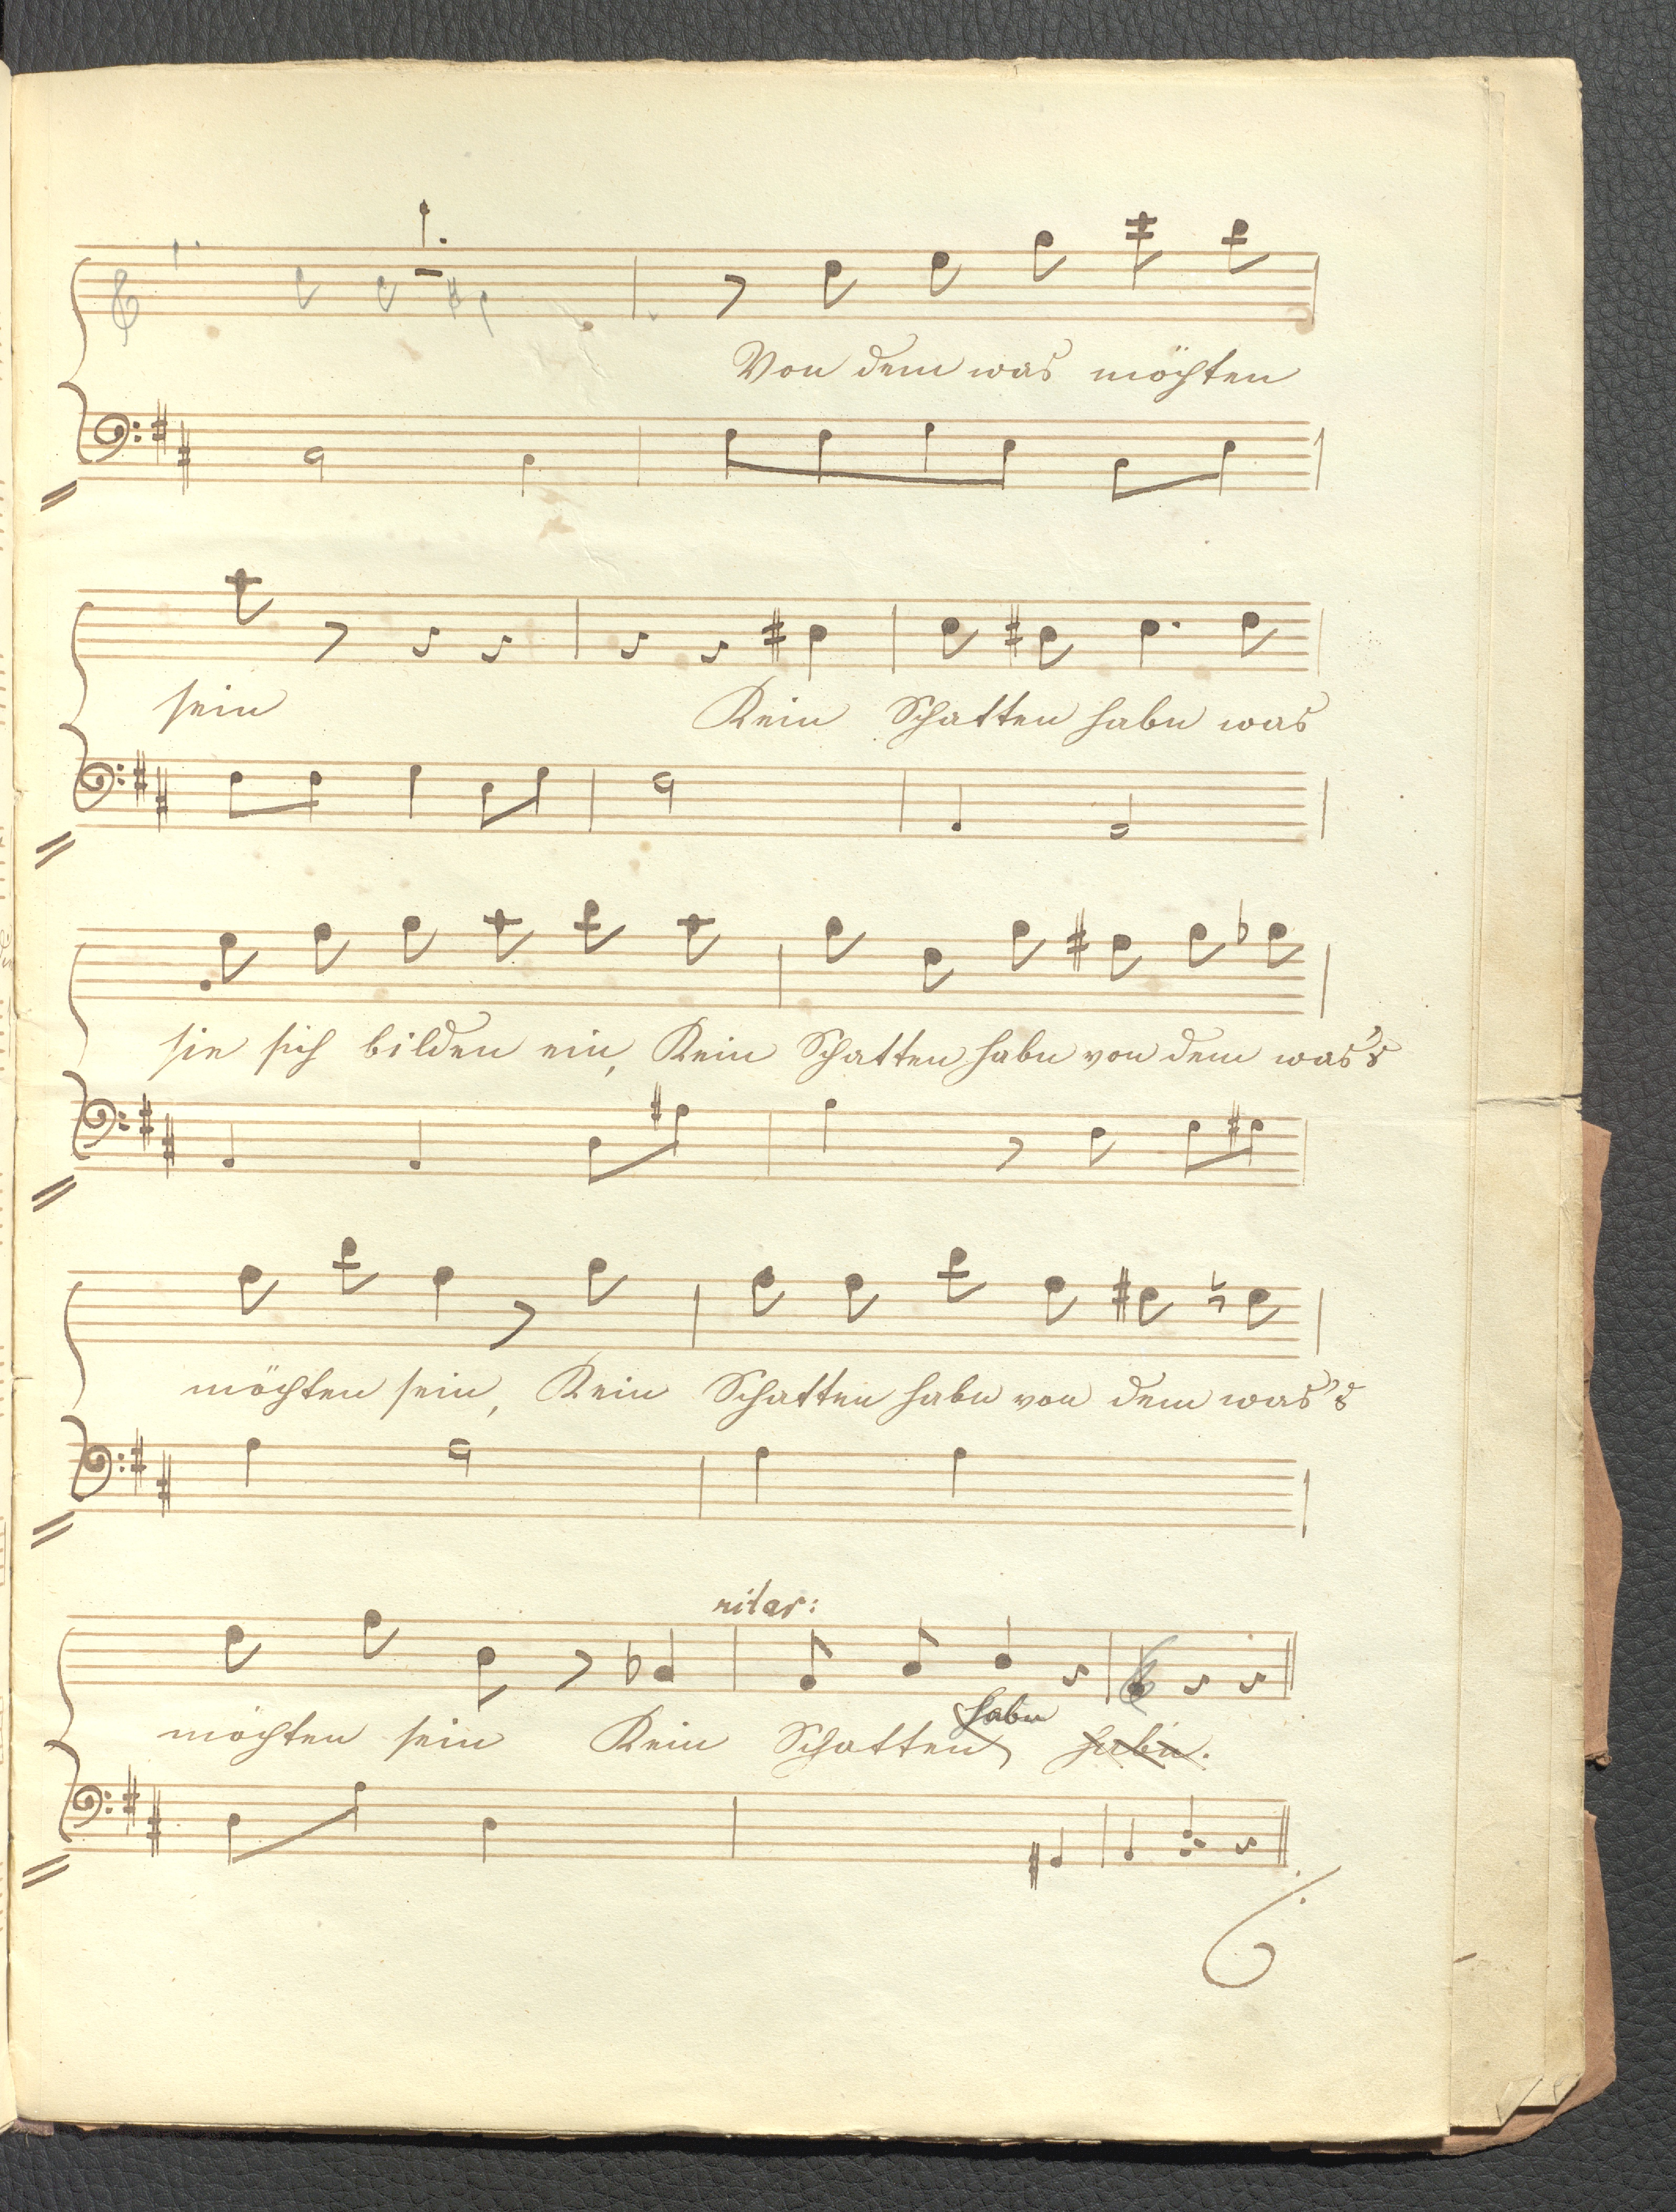 1.
Von dem was möchten
sein Kein Schatten habn was
sie sich bilden ein, Kein Schatten habn von dem was's
möchten sein, Kein Schatten habn von dem was's
ritar:
möchten sein Kein Schatten habn habn.